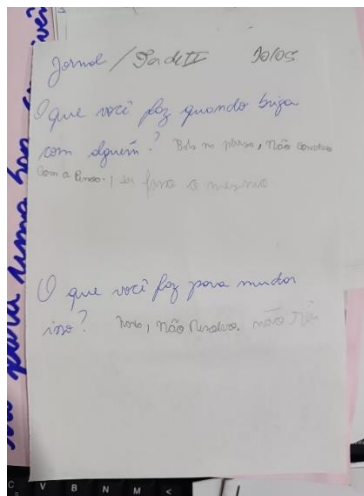 Jornal / Tarde II 30/05
O que você faz quando briga
com alguém? Bato na pessoa, Não converso
com a Pessoa, a mesma
O que você faz para mudar
isso? Nada, Não Resolvo, não
para uma boa
C V B N M <